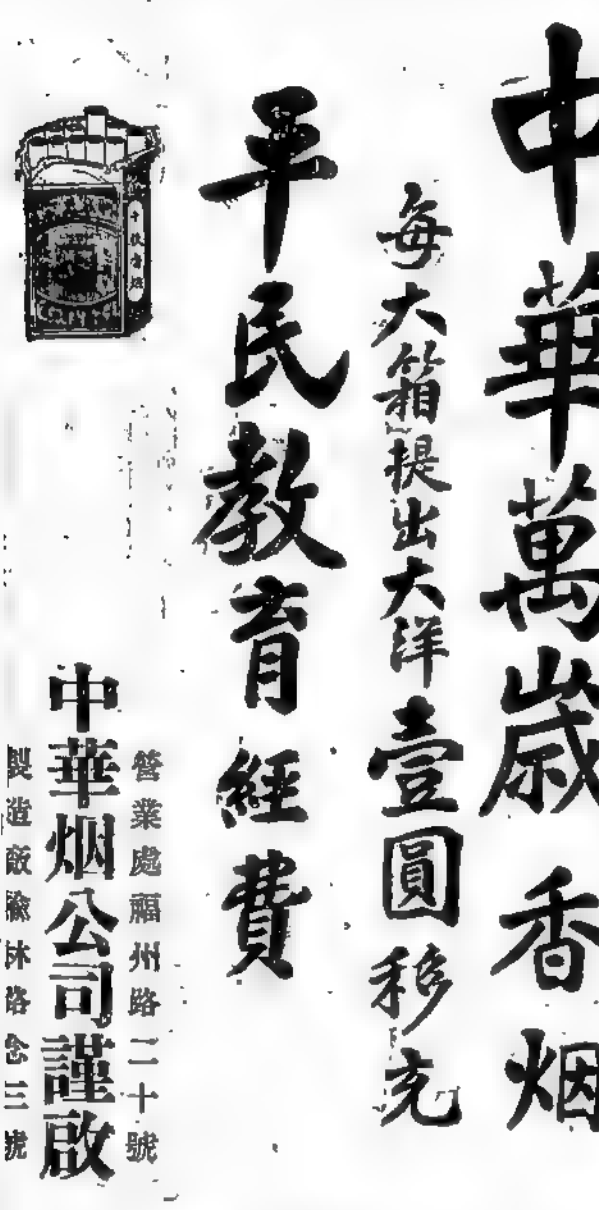 中華萬歲香烟
每大箱提出大洋壹圓移充
平民教育經費
營業處福州路二十號
中華烟公司謹啟
製造廠榆林路念三號